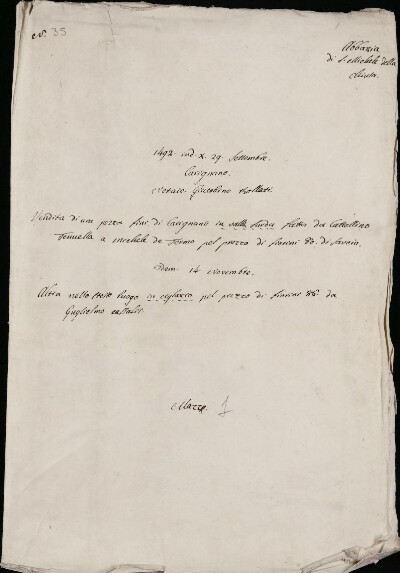 N. 35
Abbazia
di S. Michele della
Chiusa.
1492. ind. X. 29. Settembre.
Carignano.
Notaio Guiskino Rollati.
Vendita di una pezza fini di Carignano in valle fatta da
a michele de Fermo pel prezzo di fiorini 80. di Savoia.
Idem. 14 novembre.
Altra nello stesso luogo in pel prezzo di fiorini 88. da
Guglielmo
Mazzo 1